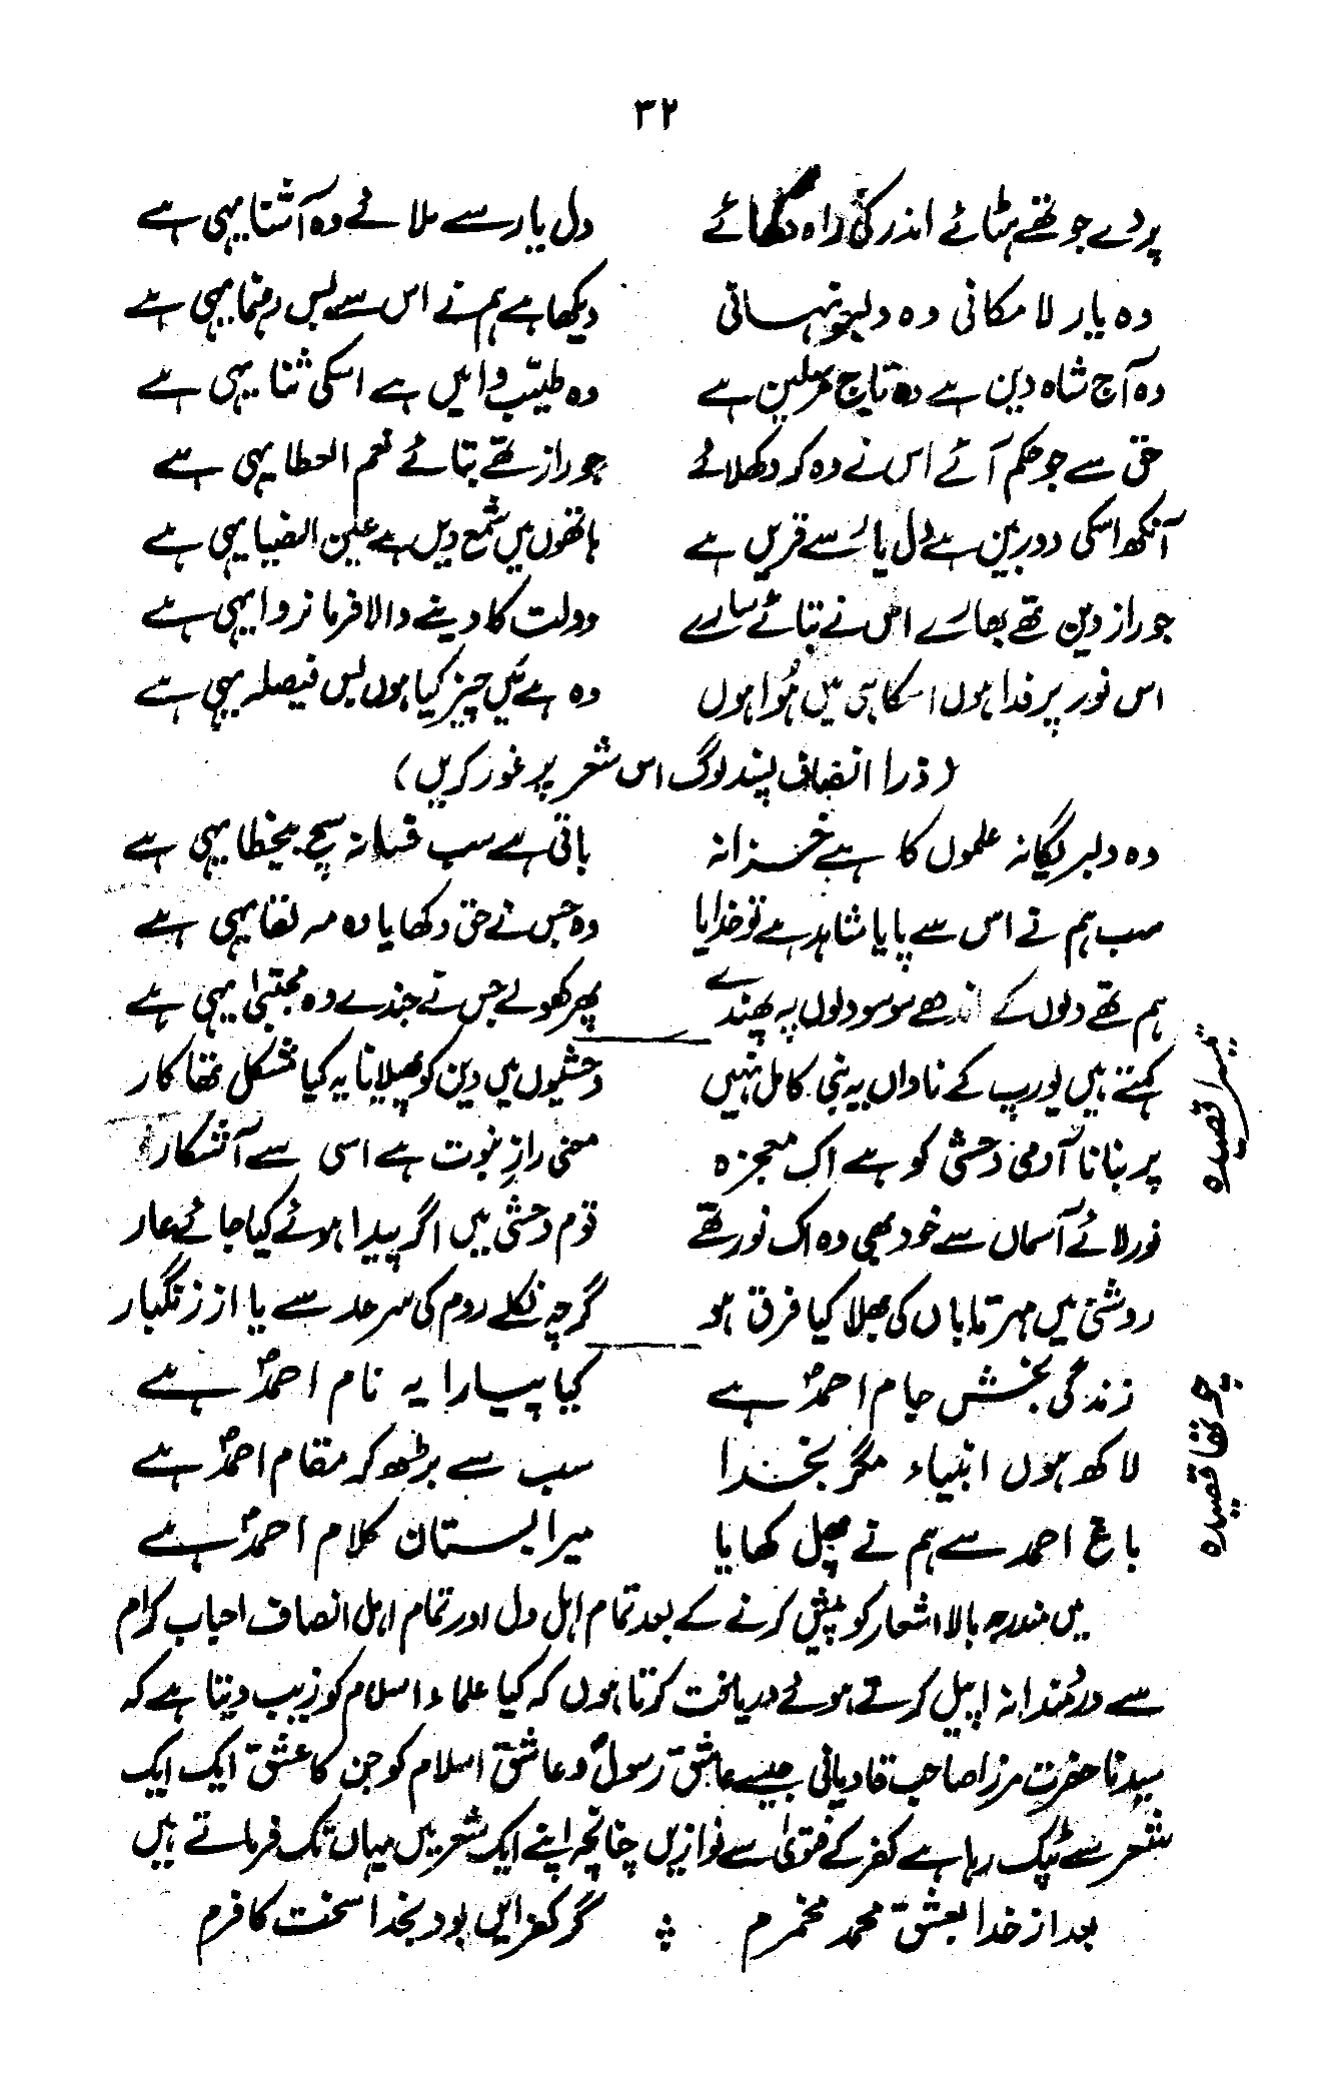 ۳۲
پردے جو تھے ہٹائے اندر کی راہ دکھائے دل یار سے ملائے وہ آشنا یہی ہے
وہ یار لامکانی وہ دلبر نہانی دیکھا ہے ہم نے اس سے بس رہنما یہی ہے
وہ آج شاہ دین ہے وہ تاج مرسلین ہے وہ طیّب و امیں ہے اسکی ثنا یہی ہے
حق سے جو حکم آئے اس نے وہ کر دکھلائے جو راز تھے بتائے نعم العطا یہی ہے
آنکھ اسکی دوربین ہے دل یار سے قریں ہے ہاتھوں میں شمع دیں ہے عین الضیا یہی ہے
جو راز دین تھے بھارے اس نے بتائے سارے دولت کا دینے والا فرمانروا یہی ہے
اس نور پر فدا ہوں اسکا ہی میں ہُوا ہوں وہ ہے مَیں چیز کیا ہوں بس فیصلہ یہی ہے
(ذرا انصاف پسند لوگ اس شعر پر غور کریں)
وہ دلبر یگانہ علموں کا ہے خزانہ باقی ہے سب فسانہ سچ بیخطا یہی ہے
سب ہم نے اس سے پایا شاہد ہے تو خدایا وہ جس نے حق دکھایا وہ مہ لقا یہی ہے
ہم تھے دلوں کے اندھے سو سو دلوں پہ پھندے پھر کھولے جس نے جندے وہ مجتبیٰ یہی ہے
تیسرا قصیدہ
کہتے ہیں یورپ کے ناداں یہ نبی کامل نہیں وحشیوں میں دین کو پھیلانا یہ کیا مشکل تھا کار
پر بنانا آدمی وحشی کو ہے اک معجزہ معنی رازِ نبوت ہے اسی سے آشکار
نور لائے آسماں سے خود بھی وہ اک نور تھے قوم وحشی میں اگر پیدا ہوئے کیا جائے عار
روشنی میں مہر تاباں کی بھلا کیا فرق ہو گرچہ نکلے روم کی سرحد سے یا از زنگبار
چوتھا قصیدہ
زندگی بخش جام احمدؐ ہے کیا پیارا یہ نام احمدؐ ہے
لاکھ ہوں انبیاء مگر بخدا سب سے بڑھ کر مقام احمدؐ ہے
باغ احمد سے ہم نے پھل کھایا میرا بستان کلام احمدؐ ہے
میں مندرجہ بالا اشعار کو پیش کرنے کے بعد تمام اہل دل اور تمام اہل انصاف احباب کرام
سے دردمندانہ اپیل کرتے ہوئے دریافت کرتا ہوں کہ کیا علماء اسلام کو زیب دیتا ہے کہ
سیدنا حضرت مرزا صاحب قادیانی جیسے عاشق رسولؐ و عاشق اسلام کو جن کا عشق ایک ایک
شعر سے ٹپک رہا ہے کفر کے فتویٰ سے نوازیں چنانچہ اپنے ایک شعر میں یہاں تک فرماتے ہیں
بعد از خدا بعشق محمد مخمرم ؞ گر کفر ایں بود بخدا سخت کافرم